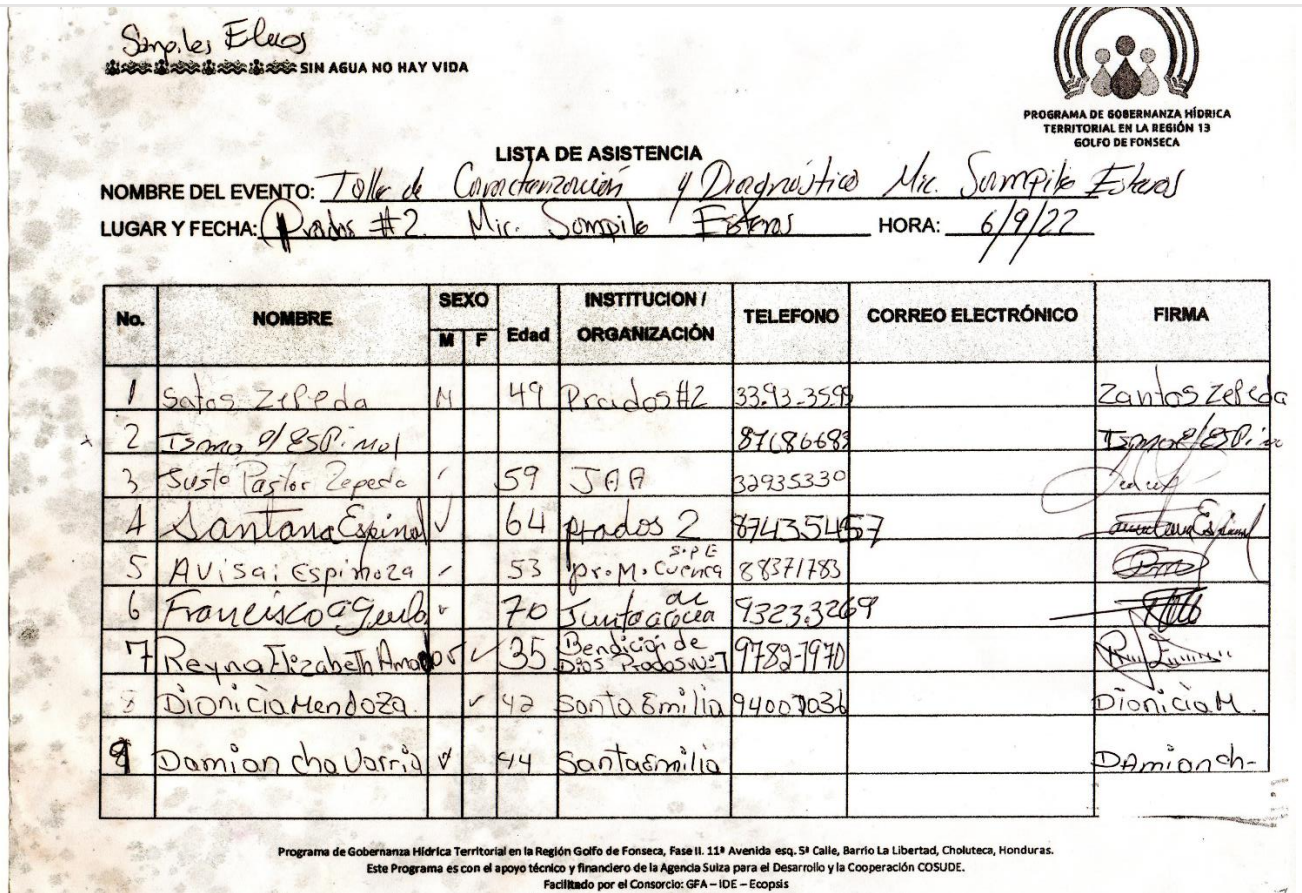 Sampiles Eteros
SIN AGUA NO HAY VIDA
PROGRAMA DE GOBERNANZA HÍDRICA
TERRITORIAL EN LA REGIÓN 13
GOLFO DE FONSECA
LISTA DE ASISTENCIA
NOMBRE DEL EVENTO: Taller de Caracterización y Diagnóstico Mic. Sampile Esteros
LUGAR Y FECHA: Prados #2. Mic. Sampile Esteros HORA: 6/9/22
No. NOMBRE SEXO M F Edad INSTITUCION / ORGANIZACIÓN TELEFONO CORREO ELECTRÓNICO FIRMA
1 Satos Zepeda M 49 Prados #2 33.93.3599 Zantos Zepeda
2 Ismael Espinal Ismael Espino
3 Justo Pastor Zepeda 59 JAA 32935330
4 Santana Espinal ✓ 64 prados 2 87435457 Santana Espinal
5 Avisai Espinoza ✓ 53 pr. M. Cuenca S.P E 88371783
6 Francisco 70 Junta de 9323.3269
7 Reyna Elizabeth Amador ✓ 35 Bendición de Dios Prados N°1 9782-1970
8 Dionicia Mendoza. ✓ 42 Santa Emilia 94007036 Dionicia M.
9 Damian chavarria ✓ 44 Santa Emilia DAmian ch-
Programa de Gobernanza Hídrica Territorial en la Región Golfo de Fonseca, Fase II. 11ª Avenida esq. 5ª Calle, Barrio La Libertad, Choluteca, Honduras.
Este Programa es con el apoyo técnico y financiero de la Agencia Suiza para el Desarrollo y la Cooperación COSUDE.
Facilitado por el Consorcio: GFA – IDE – Ecopsis